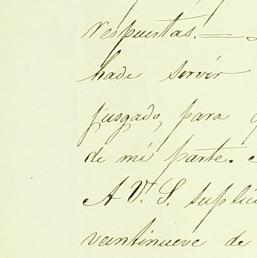 respuestas. —
hade servir
jusgado, para
de mi parte.
A V. S. suplic
vantinueve de